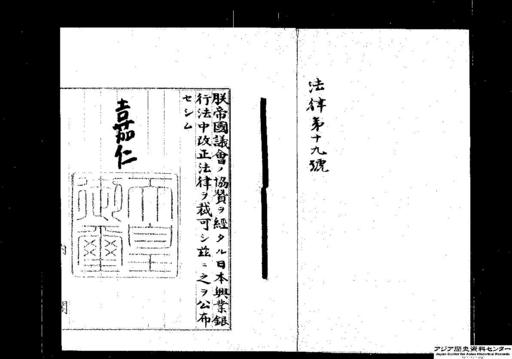 法律第十九號
朕帝國議會ノ協賛ヲ經タル日本興業銀
行法中改正法律ヲ裁可シ茲ニ之ヲ公布
セシム
嘉仁
天皇
御璽
内閣
アジア歴史資料センター
Japan Center for Asian Historical Records